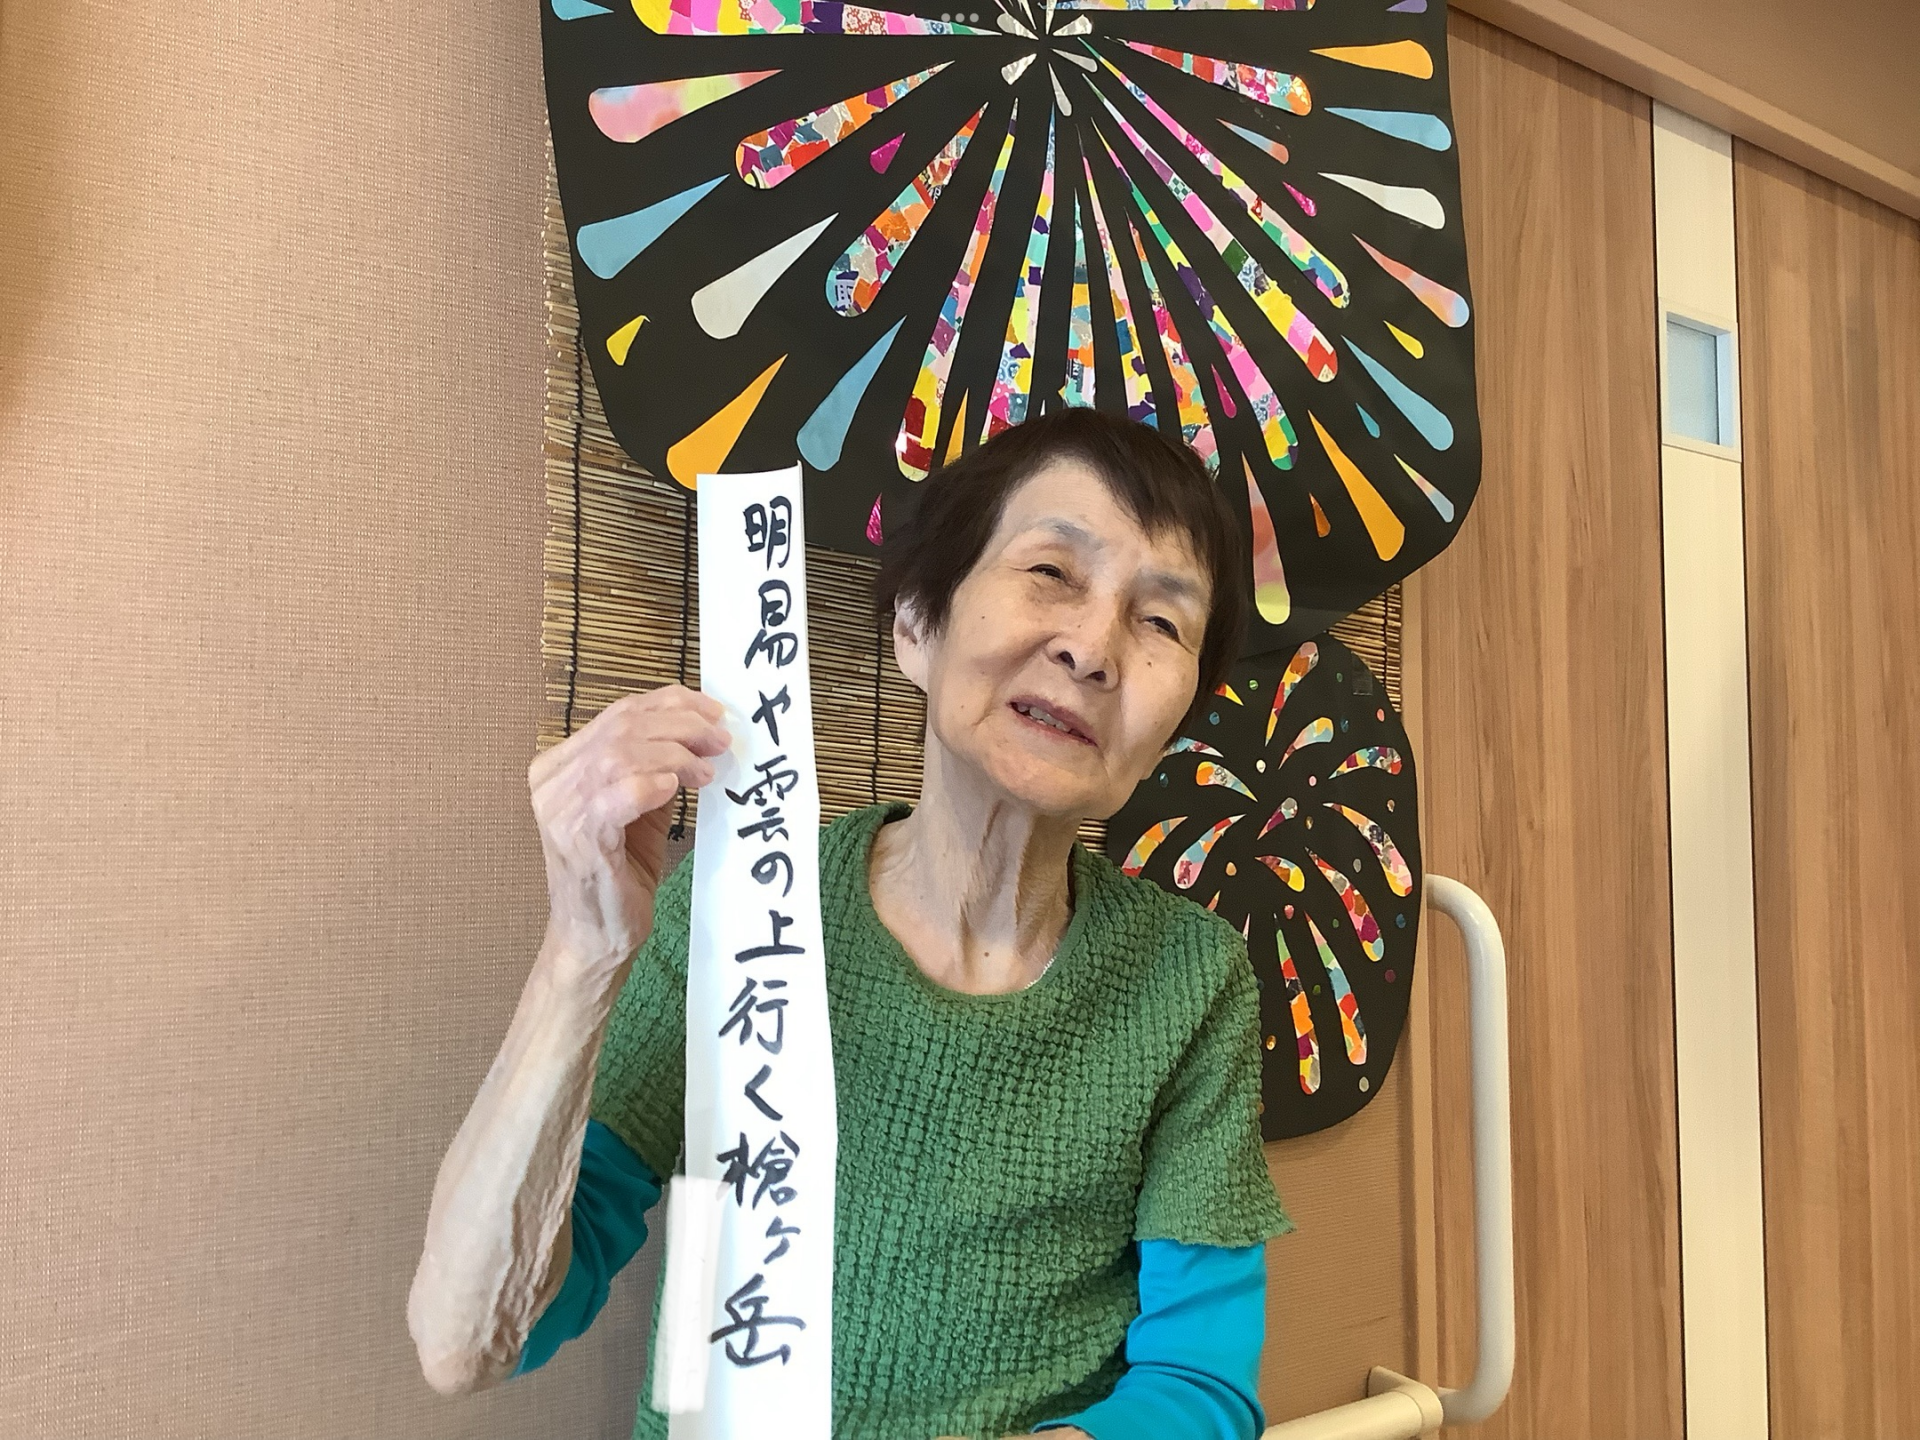 明易や雲の上行く槍ヶ岳